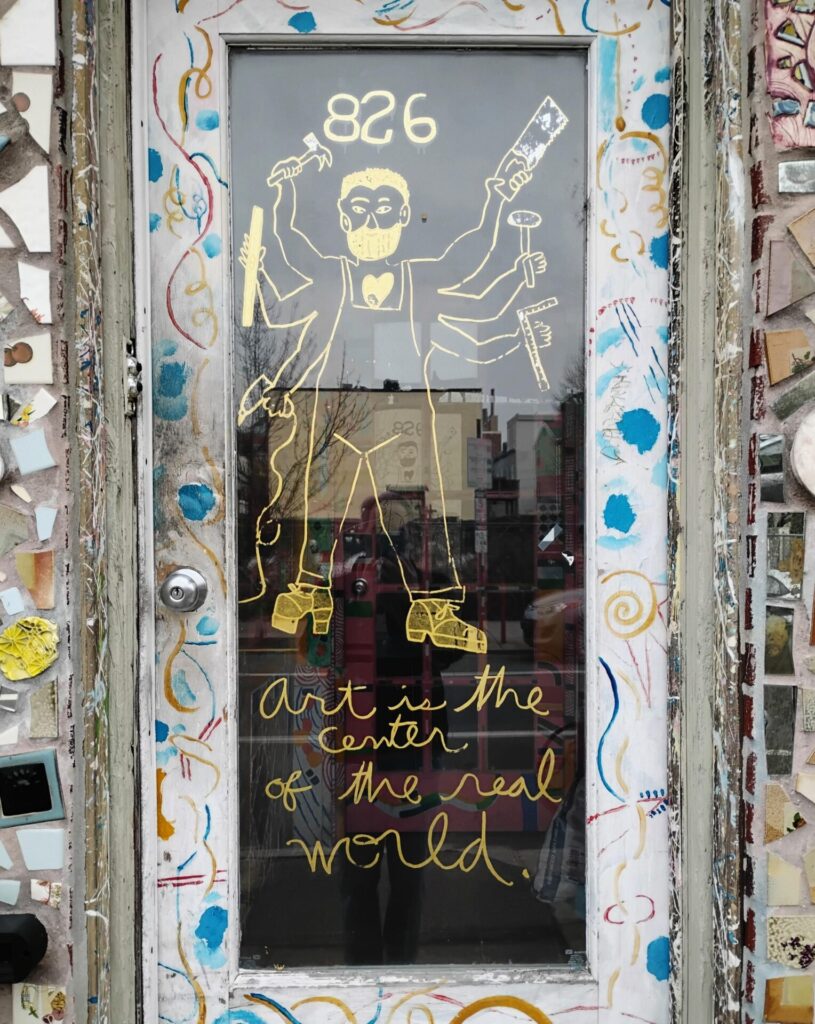 826
Art is the
center
of the real
world.